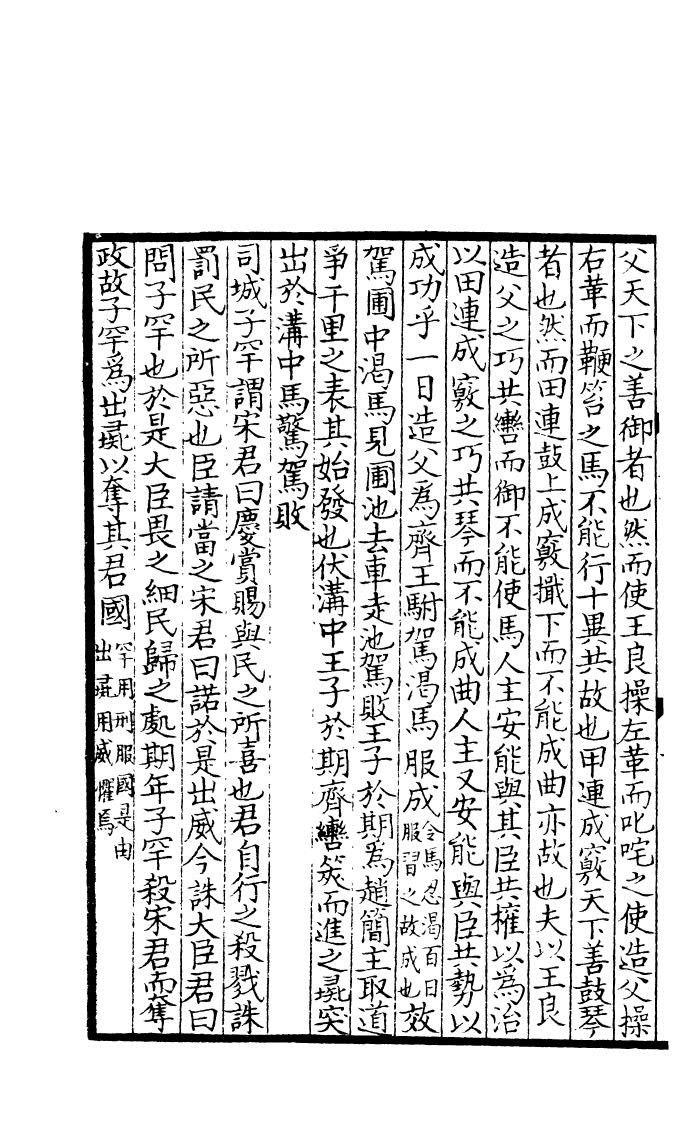 父天下之善御者也然而使王良操左革而叱咤之使造父操
右革而鞭笞之馬不能行十里共故也田連成竅天下善鼓琴
者也然而田連鼓上成竅擑下而不能成曲亦故也夫以王良
造父之巧共轡而御不能使馬人主安能與其臣共權以爲治
以田連成竅之巧共琴而不能成曲人主又安能與臣共勢以
成功乎一曰造父爲齊王駙駕渴馬服成令馬忍渴百日服習之故成也效
駕圃中渴馬見圃池去車走池駕敗王子於期爲趙簡主取道
爭千里之表其始發也伏溝中王子於期齊轡筴而進之彘突
出於溝中馬驚駕敗
司城子罕謂宋君曰慶賞賜與民之所喜也君自行之殺戮誅
罰民之所惡也臣請當之宋君曰諾於是出威令誅大臣君曰
問子罕也於是大臣畏之細民歸之處期年子罕殺宋君而奪
政故子罕爲出彘以奪其君國罕用刑服國是由出彘用威懼馬